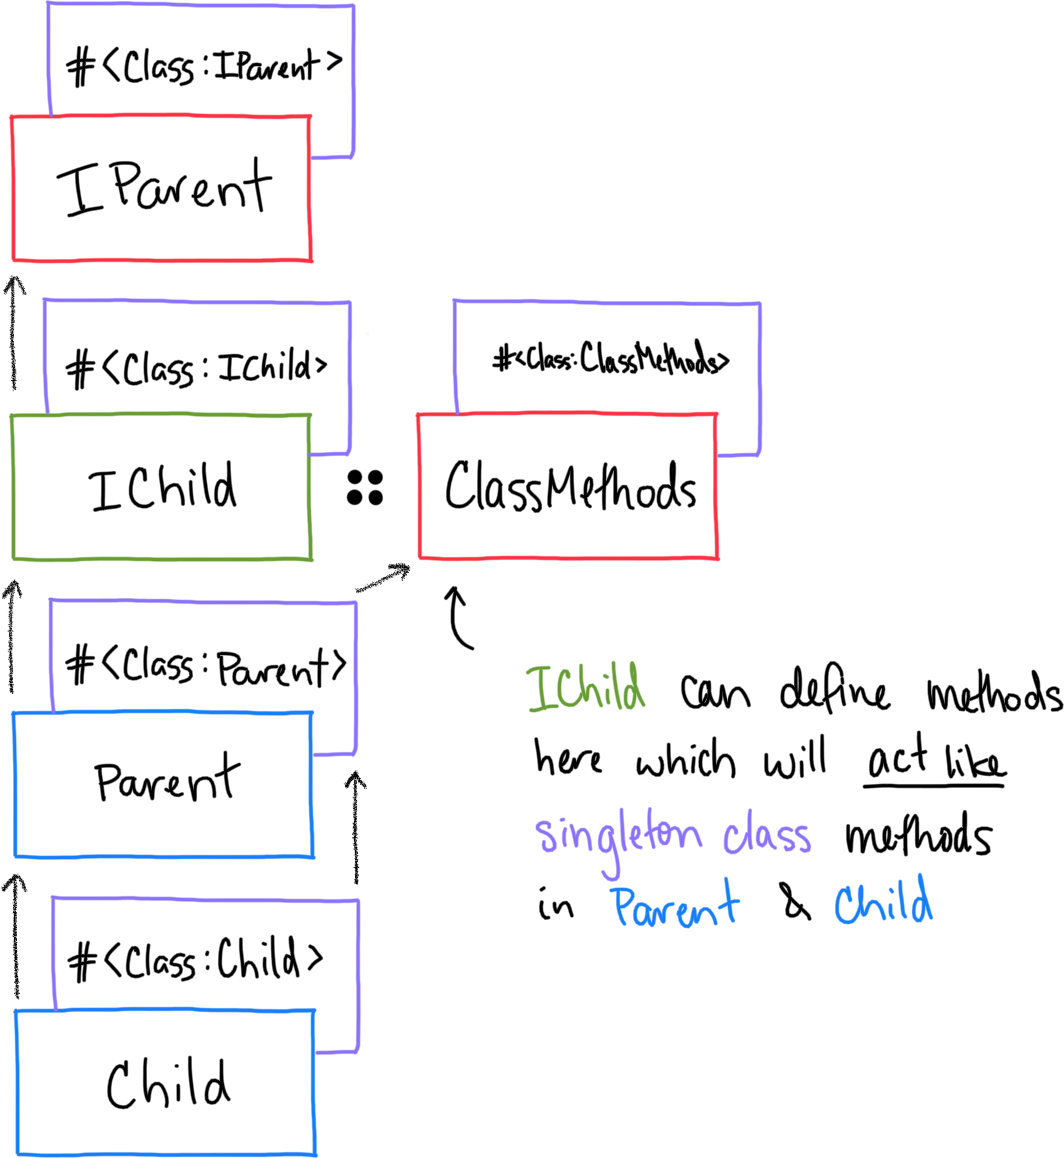 #<Class:IParent>
IParent
#<Class:IChild>
IChild
::
#<Class:ClassMethods>
ClassMethods
#<Class:Parent>
Parent
#<Class:Child>
Child
IChild can define methods
here which will act like
singleton class methods
in Parent & Child